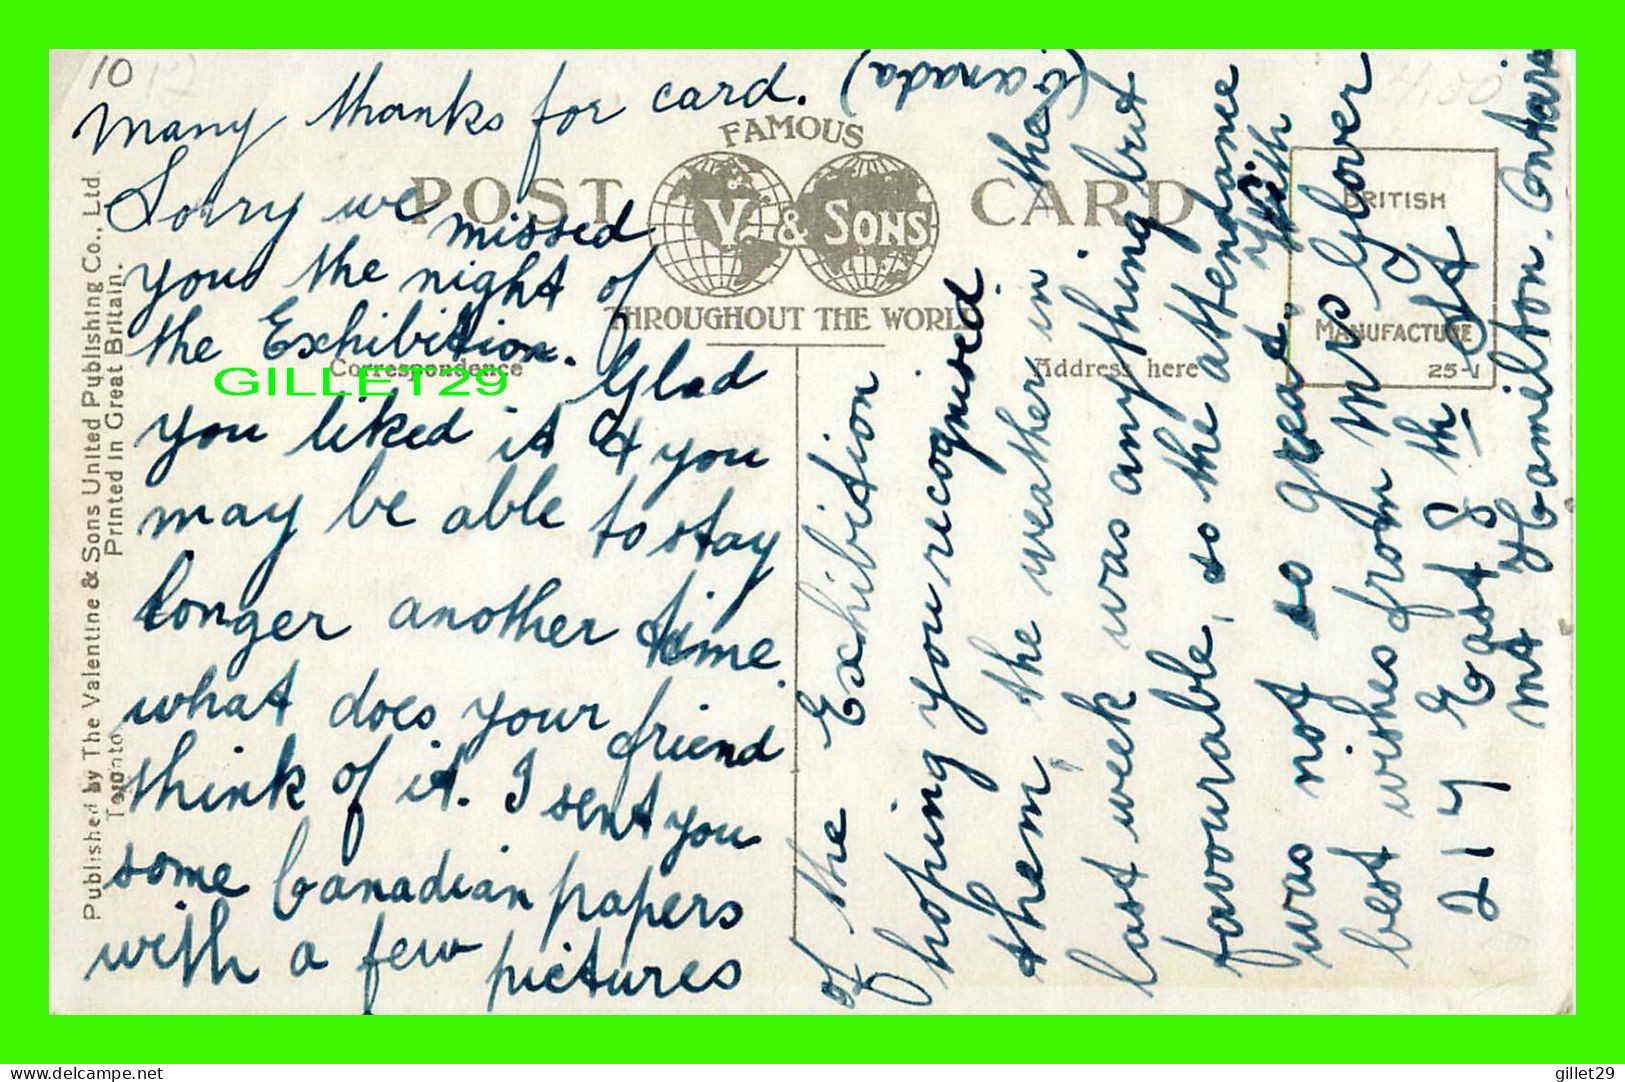 10
many thanks for card.
Sorry we missed
you the night of
the Exhibition. Glad
you liked it & you
may be able to stay
longer another time
what does your friend
think of it. I sent you
some Canadian papers
with a few pictures
of the Exhibition
hoping you recognised
them, the weather in the
last week was anything but
favourable, so the attendance
was not so great. with
best wishes from Mrs Glover
217 East 8th St
Mt Hamilton. Ontario
(Canada)
POST CARD
FAMOUS
V. & SONS
THROUGHOUT THE WORLD
Correspondence
Address here
BRITISH
MANUFACTURE
25-1
4.00
Published by The Valentine & Sons United Publishing Co., Ltd.
Toronto
Printed in Great Britain.
GILLET29
delcampe.net
gillet29